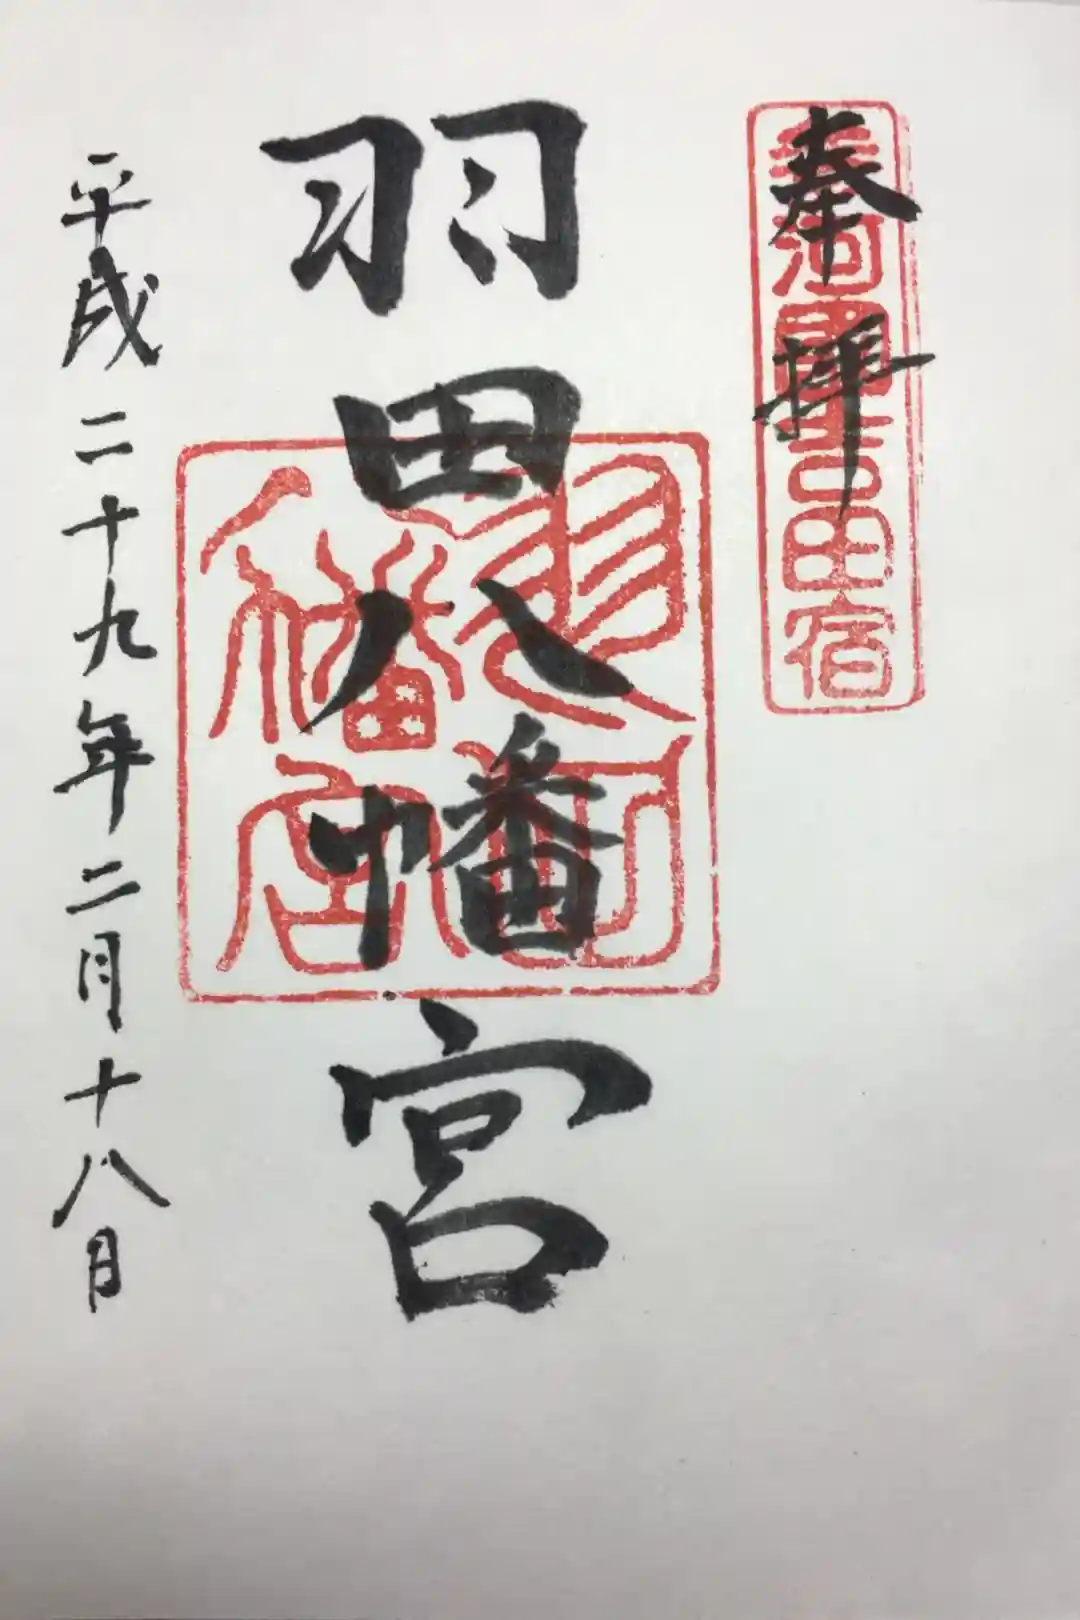 奉拝
参河國吉田宿
羽田八幡宮
羽田八幡宮
平成二十九年二月十八日